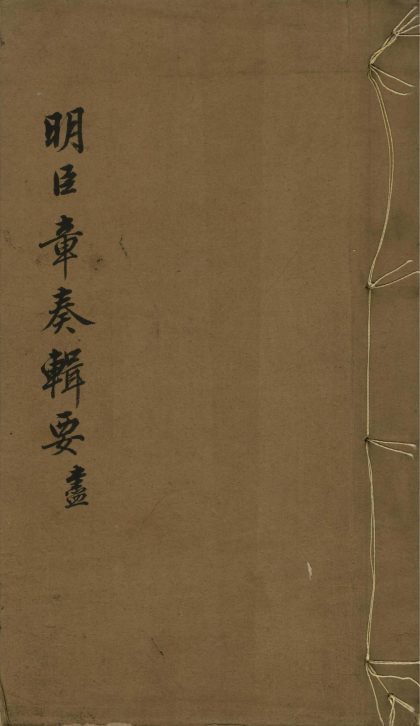 明臣章奏輯要 盡